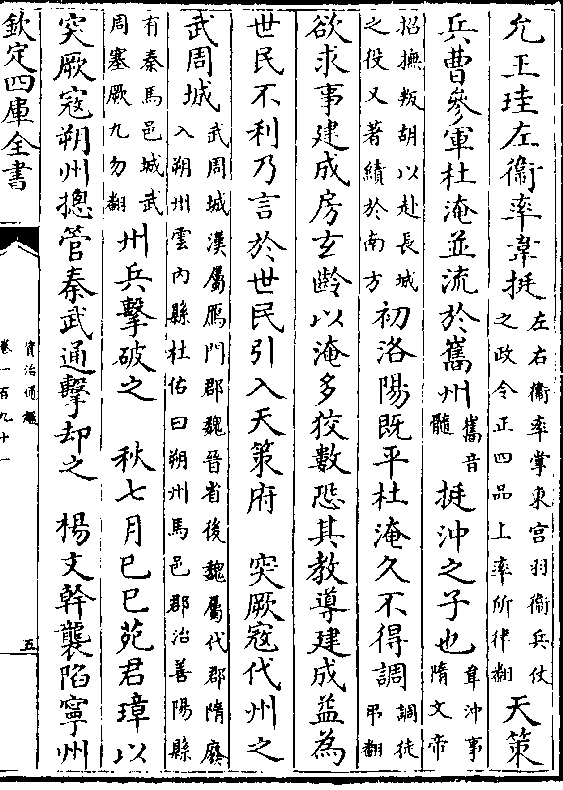 允王珪左衛率韋挺左右衛率掌東宫羽衛兵仗之政令正四品上率所律翻天策
兵曹參軍杜淹並流於巂州巂音髓挺沖之子也韋沖事隋文帝
招撫叛胡以赴長城之役又著績於南方初洛陽既平杜淹久不得調調徒弔翻
欲求事建成房玄齡以淹多狡數恐其教導建成益為
世民不利乃言於世民引入天策府 突厥寇代州之
武周城武周城漢屬鴈門郡魏晉省後魏屬代郡隋廢入朔州雲内縣杜佑曰朔州馬邑郡治善陽縣
有秦馬邑城武周塞厥九勿翻州兵擊破之 秋七月己巳苑君璋以
突厥寇朔州摠管秦武通擊却之 楊文幹襲陷寧州
欽定四庫全書
資治通鑑
卷一百九十一
五